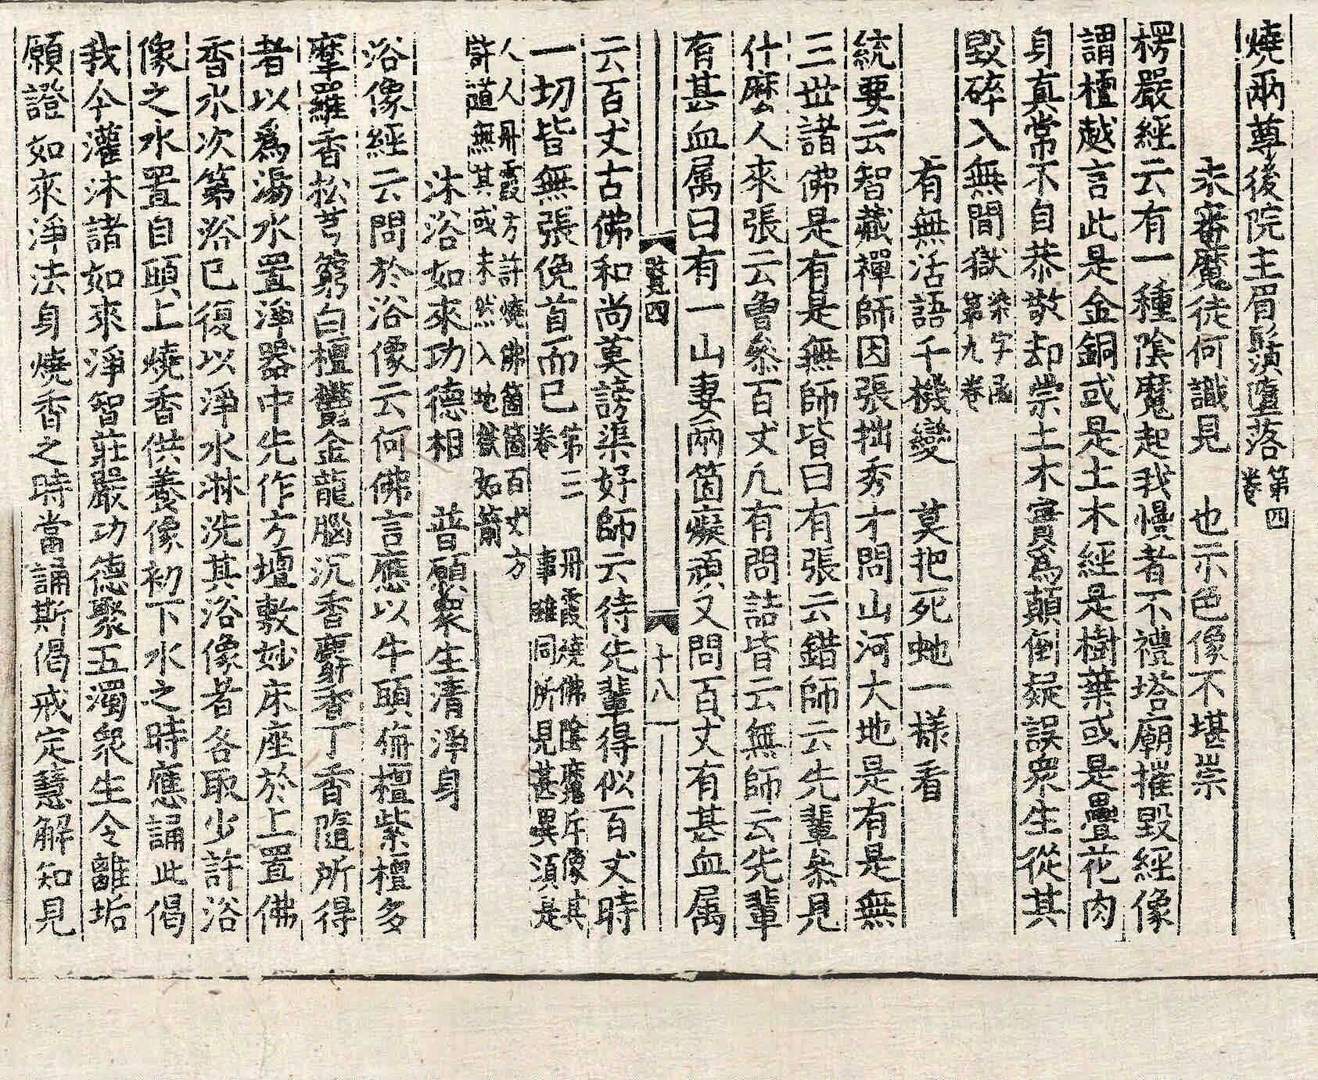 燒兩尊後院主眉鬚墮落第四卷
未審魔徒何識見　也示色像不堪崇
楞嚴經云有一種陰魔起我慢者不禮塔廟摧毀經像
謂檀越言此是金銅或是土木經是樹葉或是疊花肉
身真常不自恭敬却崇土木實爲顛倒疑誤衆生從其
毀碎入無間獄染字函第九卷
有無活語千機變　莫把死虵一樣看
統要云智藏禪師因張拙秀才問山河大地是有是無
三世諸佛是有是無師皆曰有張云錯師云先輩叅見
什麽人來張云曾叅百丈凡有問詰皆云無師云先輩
有甚血属曰有一山妻兩箇癡頑又問百丈有甚血属
賢四　十八
云百丈古佛和尚莫謗渠好師云待先輩得似百丈時
一切皆無張俛首而已第三卷　丹霞燒佛陰魔斥像其事雖同所見甚異須是
人人丹霞方許燒佛箇箇百丈方許道無其或未然入地獄如箭
沐浴如來功德相　普願衆生清淨身
浴像經云問於浴像云何佛言應以牛頭栴檀紫檀多
摩羅香松芎藭白檀鬱金龍腦沉香麝香丁香隨所得
者以爲湯水置淨器中先作方壇敷妙床座於上置佛
香水次第浴已復以淨水淋洗其浴像者各取少許浴
像之水置自頭上燒香供養像初下水之時應誦此偈
我今灌沐諸如來淨智莊嚴功德聚五濁衆生令離垢
願證如來淨法身燒香之時當誦斯偈戒定慧解知見